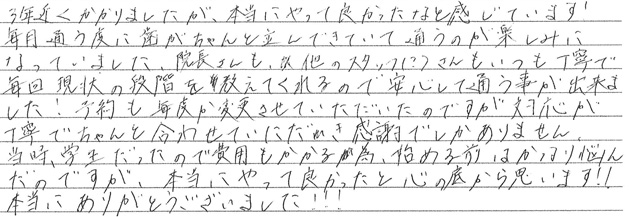 3年近くかかりましたが、本当にやって良かったなと感じています!
毎月通う度に歯がちゃんと並んできていて通うのが楽しみに
なっていました。院長さんも、お他のスタッフさんもいつも丁寧で
毎回現状の段階を教えてくれるので安心して通う事が出来ま
した!予約も毎度か変更させていただいたのですが対応が
丁寧でちゃんと合わせていただき感謝でしかありません。
当時、学生だったので費用もかかる為、始める前はかなり悩ん
だのですが、本当にやって良かったと心の底から思います!!
本当にありがとうございました!!!